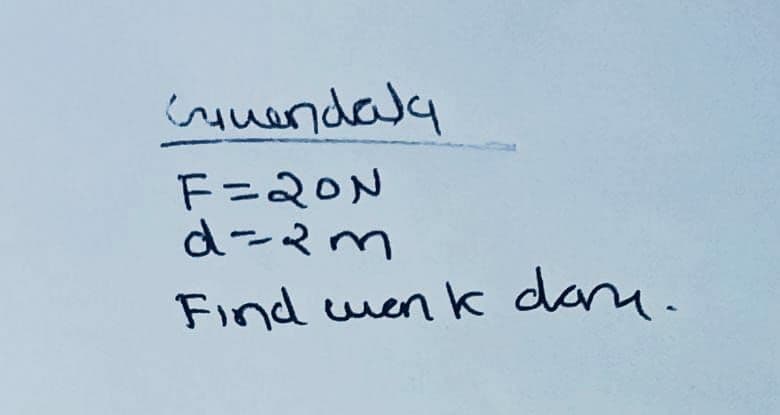 Given data
F = 20N
d = 2 m
Find work done.